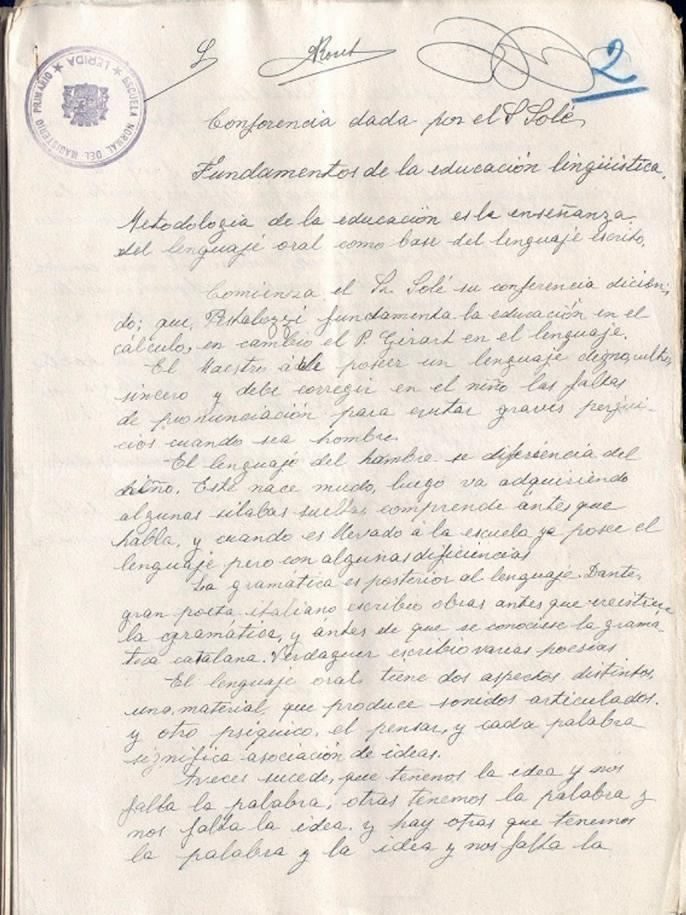 2
ESCUELA NORMAL DEL MAGISTERIO PRIMARIO ★ LERIDA ★
Conferencia dada por el S Solé
Fundamentos de la educación lingüística.
Metodología de la educación es la enseñanza
del lenguaje oral como base del lenguaje escrito.
Comienza el Sr. Solé su conferencia dicien-
do; que, Pestalozzi fundamenta la educación en el
cálculo, en cambio el P. Girart en el lenguaje.
El Maestro poseer un lenguaje digno, culto,
sincero y debe corregir en el niño las faltas
de pronunciación para evitar graves perjui-
cios cuando sea hombre.
El lenguaje del hombre se diferencia del
niño. Este nace mudo, luego va adquiriendo
algunas sílabas sueltas comprende antes que
habla, y cuando es llevado á la escuela ya posee el
lenguaje pero con algunas deficiencias
La gramática es posterior al lenguaje. Dante,
gran poeta italiano escribio obras antes que
la gramática, y ántes de que se conociese la gramá-
tica catalana. Verdaguer escribio varias poesías
El lenguaje oral tiene dos aspectos distintos,
uno, material que produce sonidos articulados.
y otro psíquico, el pensar, y cada palabra
significa asociación de ideas.
Aveces sucede, que tenemos la idea y nos
falta la palabra, otras tenemos la palabra y
nos falta la idea. y hay otras que tenemos
la palabra y la idea y nos falta la